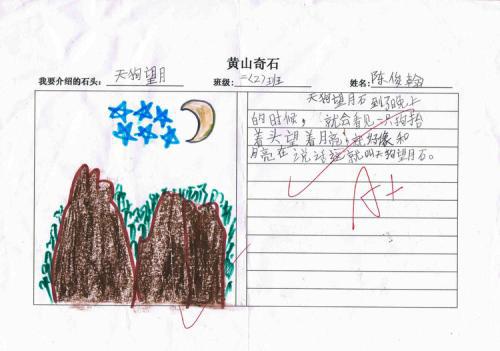 黄山奇石
我要介绍的石头：天狗望月 班级：二(2)班 姓名：陈俊翰
天狗望月石到了晚上
的时候，就会看见一只狗抬
着头望着月亮，好像和
月亮在说话这就叫天狗望月石。
A+